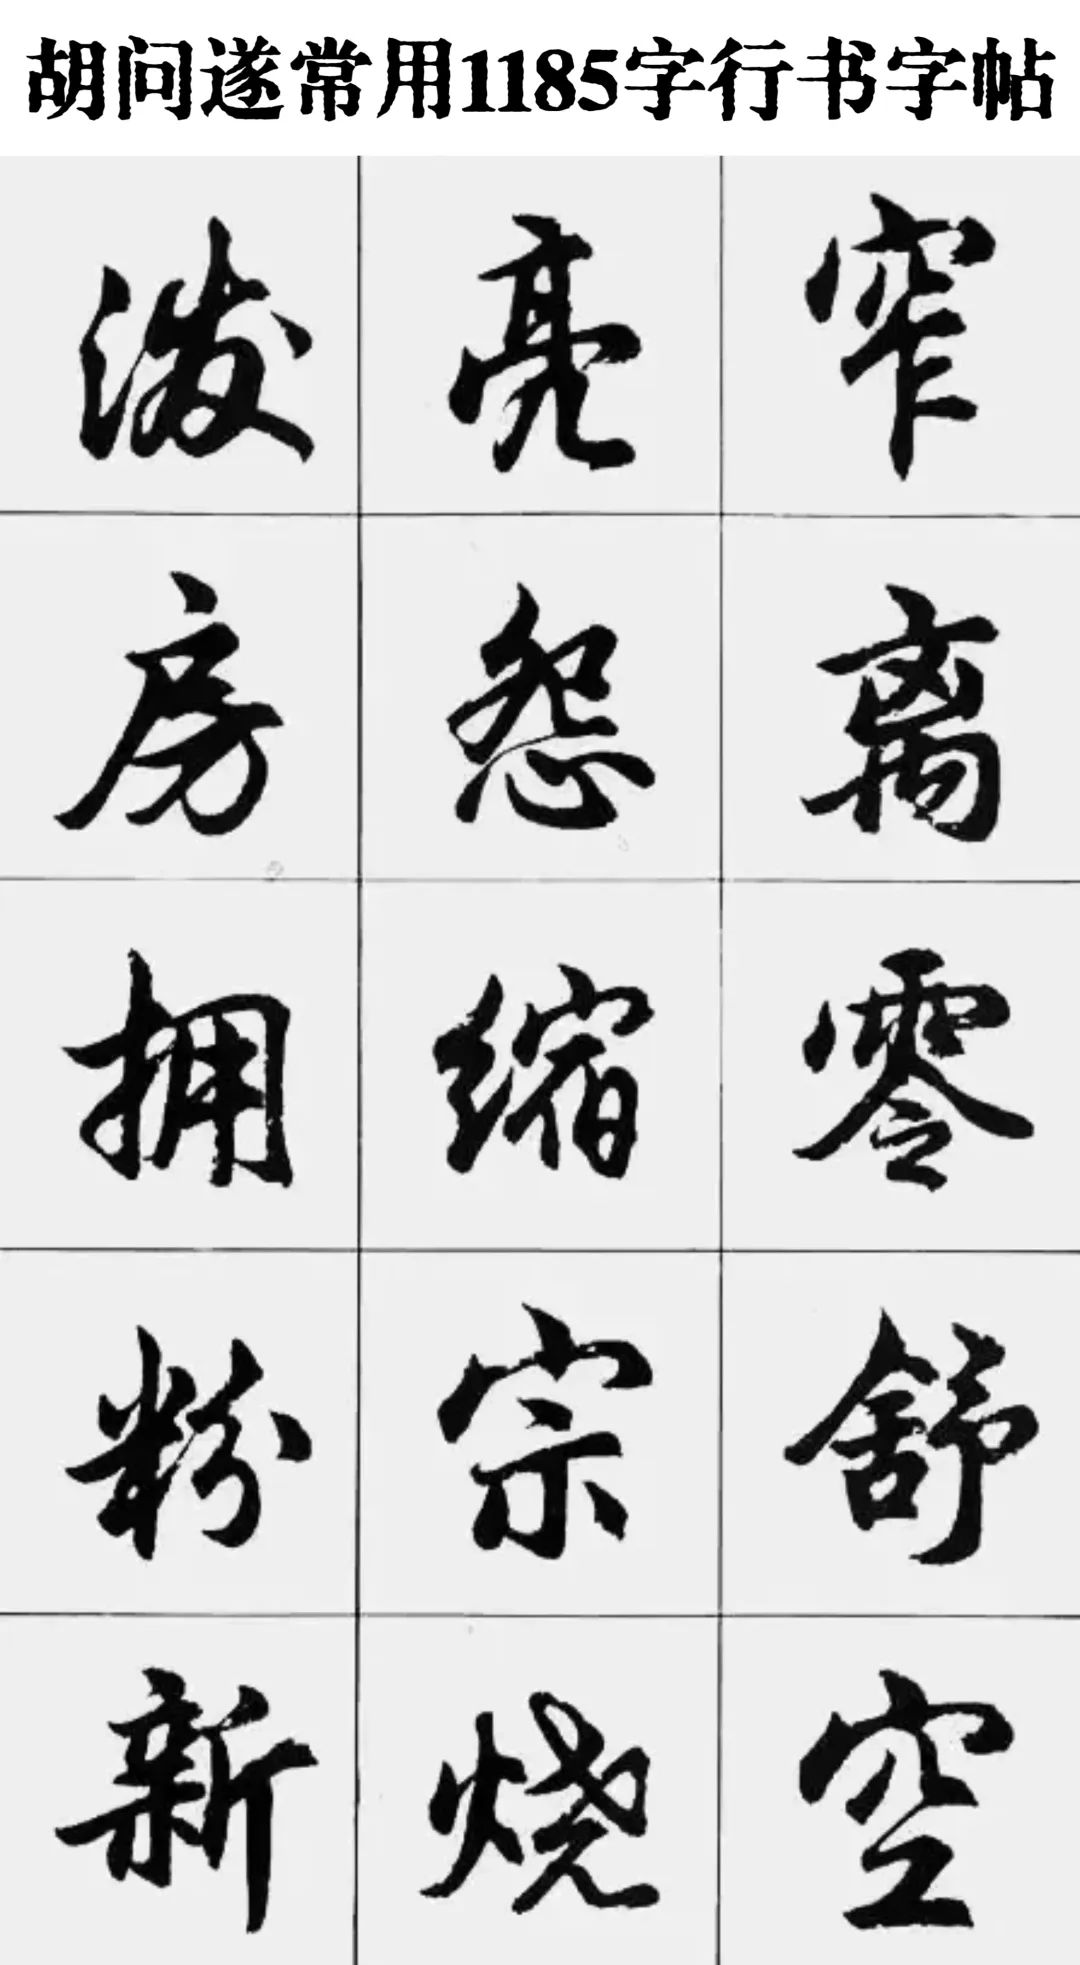 胡问遂常用1185字行书字帖
泼亮窄
房怨离
拥缩零
粉宗舒
新烧空